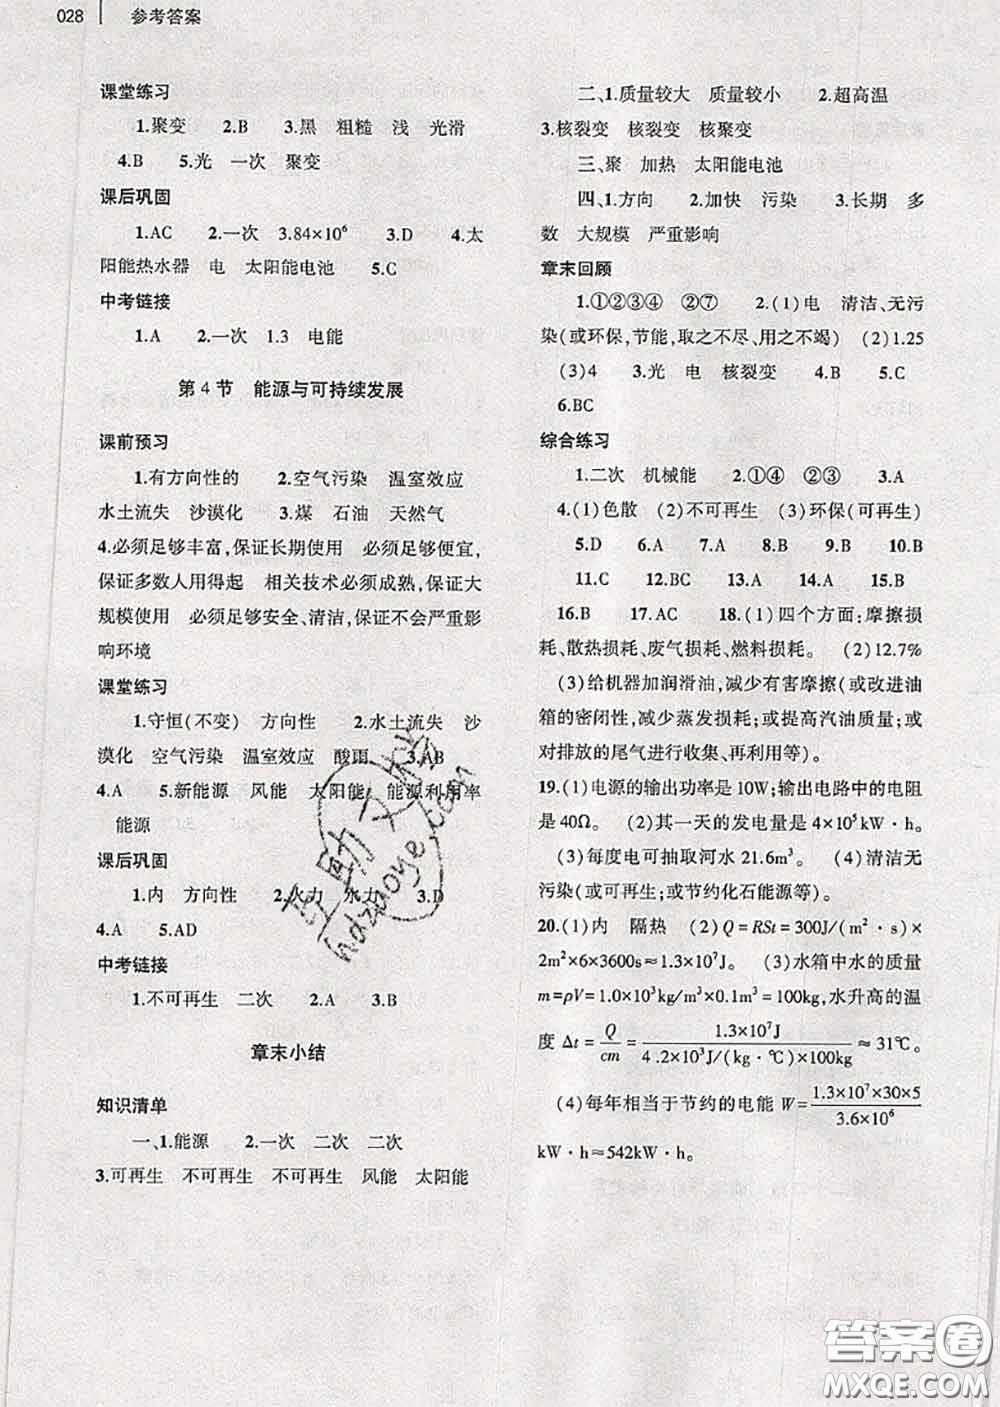 028 参考答案
课堂练习
1.聚变 2.B 3.黑 粗糙 浅 光滑
4.B 5.光 一次 聚变
课后巩固
1.AC 2.一次 3.84×10⁶ 3.D 4.太
阳能热水器 电 太阳能电池 5.C
中考链接
1.A 2.一次 1.3 电能
第4节 能源与可持续发展
课前预习
1.有方向性的 2.空气污染 温室效应
水土流失 沙漠化 3.煤 石油 天然气
4.必须足够丰富,保证长期使用 必须足够便宜,
保证多数人用得起 相关技术必须成熟,保证大
规模使用 必须足够安全、清洁,保证不会严重影
响环境
课堂练习
1.守恒(不变) 方向性 2.水土流失 沙
漠化 空气污染 温室效应 酸雨 3.AB
4.A 5.新能源 风能 太阳能 能源利用率
能源
课后巩固
1.内 方向性 2.火力 水力 3.D
4.A 5.AD
中考链接
1.不可再生 二次 2.A 3.B
章末小结
知识清单
一、1.能源 2.一次 二次 二次
3.可再生 不可再生 不可再生 风能 太阳能
二、1.质量较大 质量较小 2.超高温
3.核裂变 核裂变 核聚变
三、聚 加热 太阳能电池
四、1.方向 2.加快 污染 3.长期 多
数 大规模 严重影响
章末回顾
1.①②③④ ②⑦ 2.(1)电 清洁、无污
染(或环保,节能,取之不尽、用之不竭) (2)1.25
(3)4 3.光 电 核裂变 4.B 5.C
6.BC
综合练习
1.二次 机械能 2.①④ ②③ 3.A
4.(1)色散 (2)不可再生 (3)环保(可再生)
5.D 6.A 7.A 8.B 9.B 10.B
11.C 12.BC 13.A 14.A 15.B
16.B 17.AC 18.(1)四个方面:摩擦损
耗、散热损耗、废气损耗、燃料损耗。 (2)12.7%
(3)给机器加润滑油,减少有害摩擦(或改进油
箱的密闭性,减少蒸发损耗;或提高汽油质量;或
对排放的尾气进行收集、再利用等)。
19.(1)电源的输出功率是10W;输出电路中的电阻
是40Ω。 (2)其一天的发电量是4×10⁵kW·h。
(3)每度电可抽取河水21.6m³。 (4)清洁无
污染(或可再生;或节约化石能源等)。
20.(1)内 隔热 (2)Q=RSt=300J/(m²·s)×
2m²×6×3600s≈1.3×10⁷J。 (3)水箱中水的质量
m=ρV=1.0×10³kg/m³×0.1m³=100kg,水升高的温
度 Δt=Q/cm=1.3×10⁷J/4.2×10³J/(kg·℃)×100kg≈31℃。
(4)每年相当于节约的电能 W=1.3×10⁷×30×5/3.6×10⁶
kW·h≈542kW·h。
互助文档
hdzuoye.com
答案圈
MXQE.COM